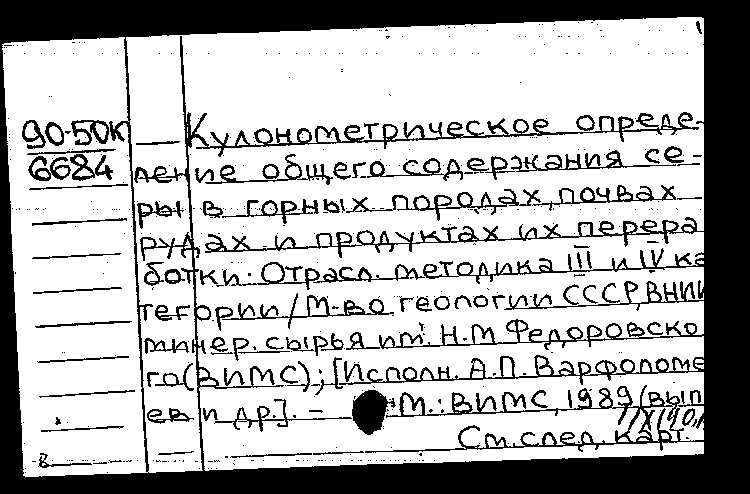 90-50К
6684
Кулонометрическое опреде-
ление общего содержания се-
ры в горных породах, почвах
рудах и продуктах их перера
ботки. Отрасл. методика III и IV ка
тегории/М-во геологии СССР, ВНИИ
минер. сырья им. Н.М Федоровско
го(ВИМС); [Исполн. А.П. Варфоломе
ев и др.]. - М.: ВИМС, 1989 (вып
См. след. карт.
8